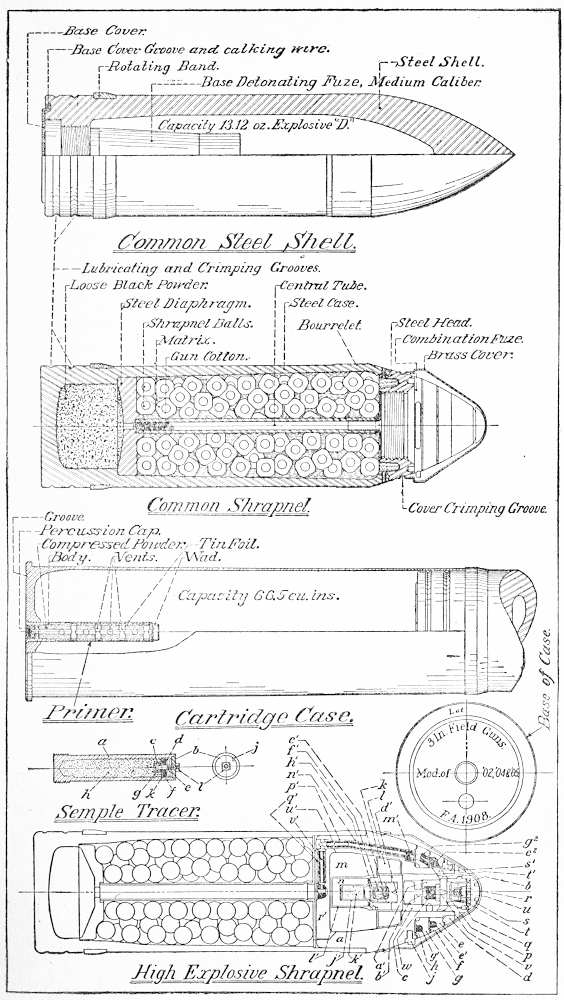 Base Cover.
Base Cover Groove and calking wire.
Rotating Band.
Steel Shell.
Base Detonating Fuze, Medium Caliber.
Capacity 13.12 oz. Explosive "D."
Common Steel Shell.
Lubricating and Crimping Grooves.
Loose Black Powder.
Central Tube.
Steel Diaphragm.
Steel Case.
Shrapnel Balls.
Bourrelet.
Steel Head.
Matrix.
Combination Fuze.
Gun Cotton.
Brass Cover.
Common Shrapnel.
Cover Crimping Groove.
Groove.
Percussion Cap.
Compressed Powder.
Tin Foil.
Body.
Vents.
Wad.
Capacity 66.5 cu. ins.
Primer.
Cartridge Case.
Base of Case.
Lot
3 In. Field Guns
Mod. of '02,'04&'05
F.A. 1908.
a
c
d
b
j
h
g
k
f
e
l
Semple Tracer.
c'
f'
h'
n'
p'
q'
u'
v'
k
l
d'
m'
g²
e²
s'
t'
b
r
u
s
t
q
p
v
d
m
n
r'
a
l'
j'
k'
a'
b'
w
c
g'
h
j
e
e'
f
g
High Explosive Shrapnel.